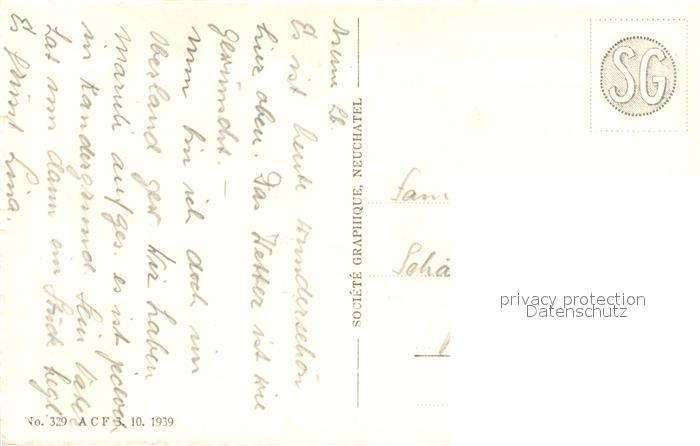 Meine Lb.
Es ist heute wunderschön
hier oben. Das Wetter ist wie
gewünscht. –
Nun bin ich doch im
Oberland gew. Wir haben
Maruli aufges. es ist jedoch
in Kandergrund. Sein Vater
Las uns dann ein Stück
Es grüsst Lina.
SOCIÉTÉ GRAPHIQUE, NEUCHATEL
No. 329 A C F 3. 10. 1939
SG
Fam
Schä
privacy protection
Datenschutz